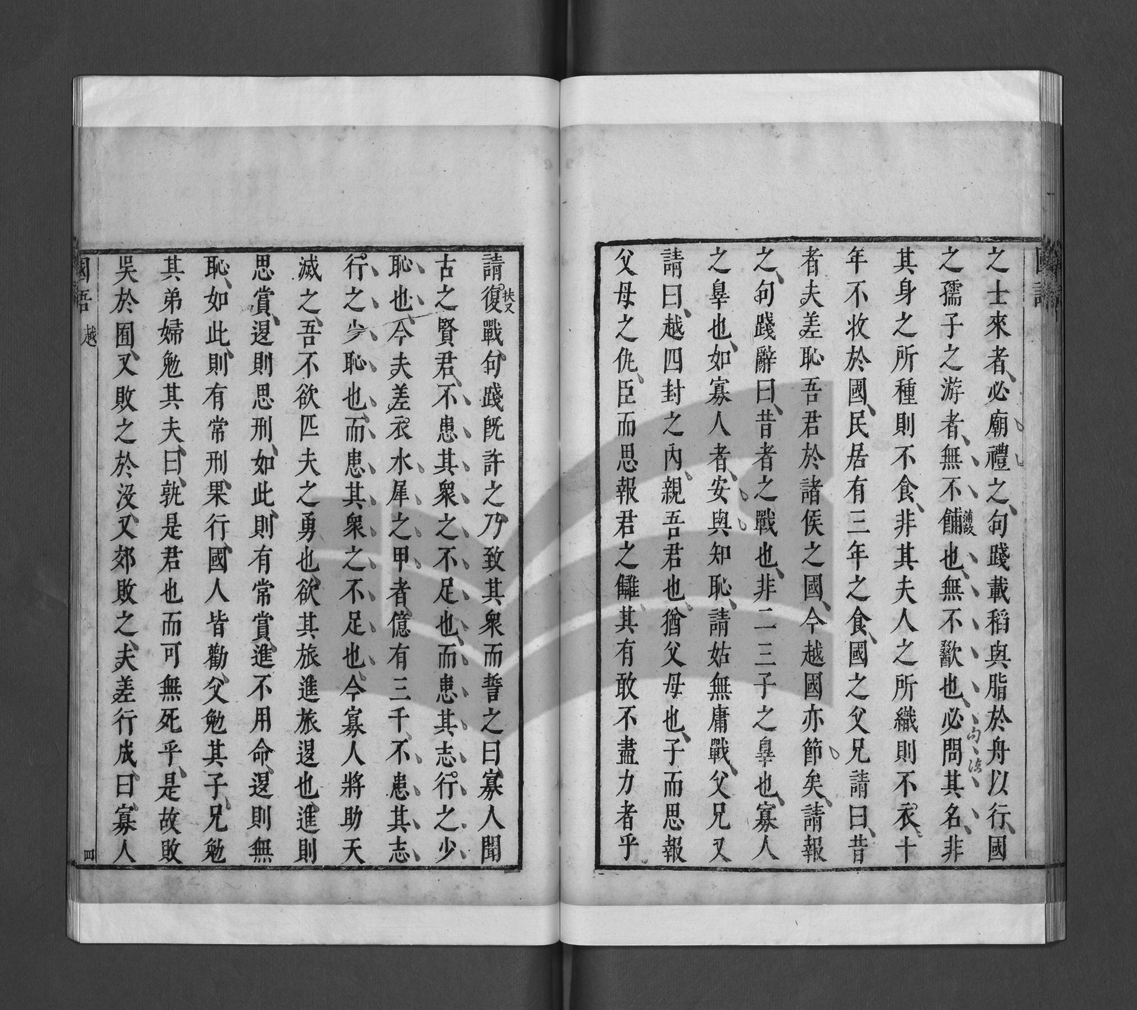 國語
之士來者必廟禮之句踐載稻與脂於舟以行國
之孺子之游者無不餔也無不歠也必問其名非
蒲故
句法
其身之所種則不食非其夫人之所織則不衣十
年不收於國民居有三年之食國之父兄請曰昔
者夫差恥吾君於諸侯之國今越國亦節矣請報
之句踐辭曰昔者之戰也非二三子之辠也寡人
之辠也如寡人者安與知恥請姑無庸戰父兄又
請曰越四封之內親吾君也猶父母也子而思報
父母之仇臣而思報君之讎其有敢不盡力者乎
請復戰句踐旣許之乃致其衆而誓之曰寡人聞
扶又
古之賢君不患其衆之不足也而患其志行之少
恥也今夫差衣水犀之甲者億有三千不患其志
行之少恥也而患其衆之不足也今寡人將助天
滅之吾不欲匹夫之勇也欲其旅進旅退也進則
思賞退則思刑如此則有常賞進不用命退則無
恥如此則有常刑果行國人皆勸父勉其子兄勉
其弟婦勉其夫曰孰是君也而可無死乎是故敗
吳於囿又敗之於沒又郊敗之夫差行成曰寡人
國語 越 四